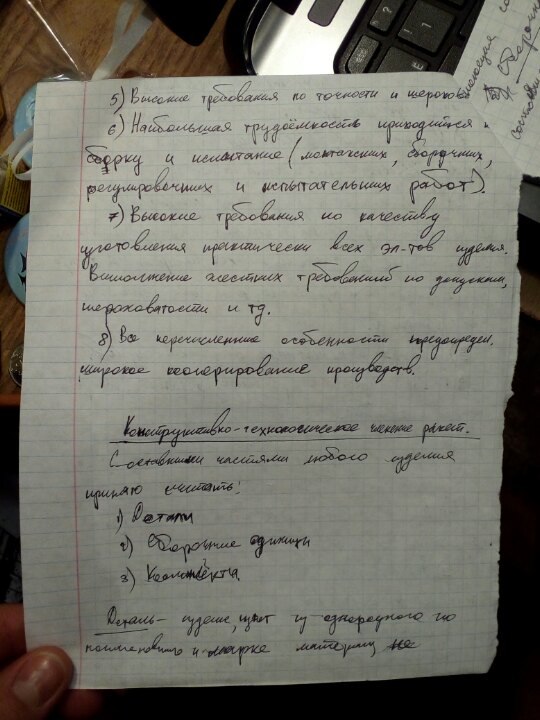 5) Высокие требования по точности и шерохов.
6) Наибольшая трудоёмкость приходится
сборку и испытание (монтажных, сборочных,
регулировочных и испытательных работ).
7) Высокие требования по качеству
изготовления практически всех эл-тов изделия.
Выполнение жестких требований по допускам,
шероховатости и тд.
8) Все перечисленные особенности предопредел.
широкое кооперирование производств.
Конструктивно-технологическое членение ракет.
Составными частями любого изделия
принято считать:
1) Детали
2) Сборочные единицы
3) Комплекты
Деталь - изделие, из однородного по
наименованию и марке материала, не
Сборочн